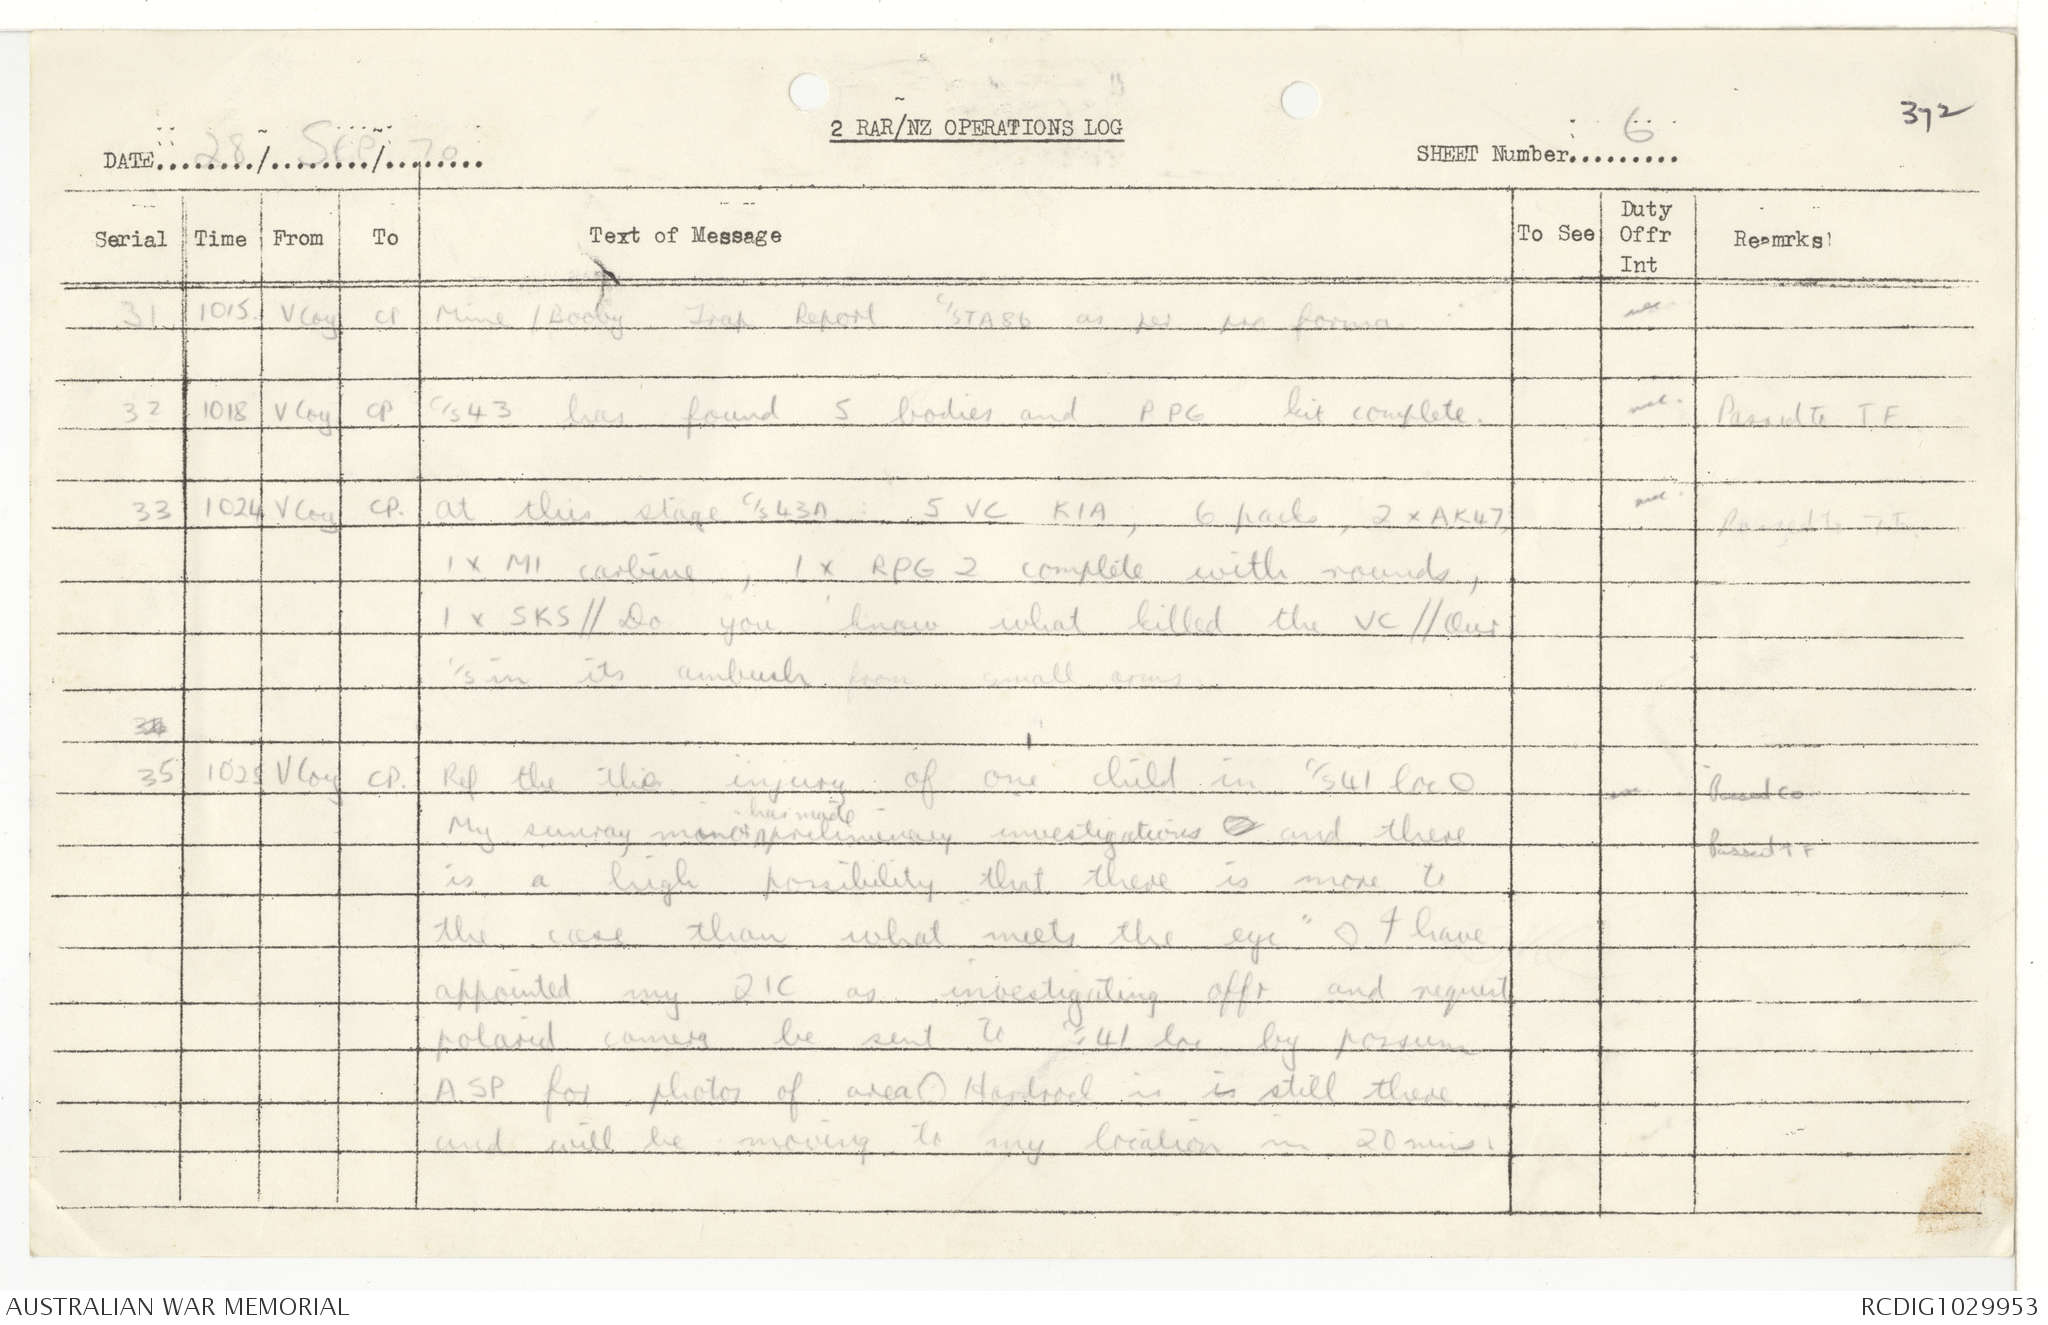 372
2 RAR/NZ OPERATIONS LOG
DATE 28 / SEP / 70
SHEET Number 6
Serial Time From To Text of Message To See Duty Offr Int Remrks
31 1015 V Coy CP Mine / Booby Trap Report C/S TA86 as per pro forma.
32 1018 V Coy CP C/S 43 has found 5 bodies and RPG kit complete. Passed to TF
33 1024 V Coy CP. at this stage C/S 43A : 5 VC KIA, 6 packs, 2 x AK47, Passed to TF.
1 x M1 carbine, 1 x RPG 2 complete with rounds,
1 x SKS // Do you know what killed the VC // Our
C/S in its ambush from small arms
34
35 1025 V Coy CP. Ref the injury of one child in C/S 41 loc O Passed CO
My sunray has made preliminary investigations and there Passed TF
is a high possibility that there is more to
the case than what meets the eye" O I have
appointed my 2IC as investigating offr and request
polarid camera be sent to C/S 41 loc by possum
ASP for photos of area O is is still there
and will be moving to my location in 20 mins.
AUSTRALIAN WAR MEMORIAL
RCDIG1029953